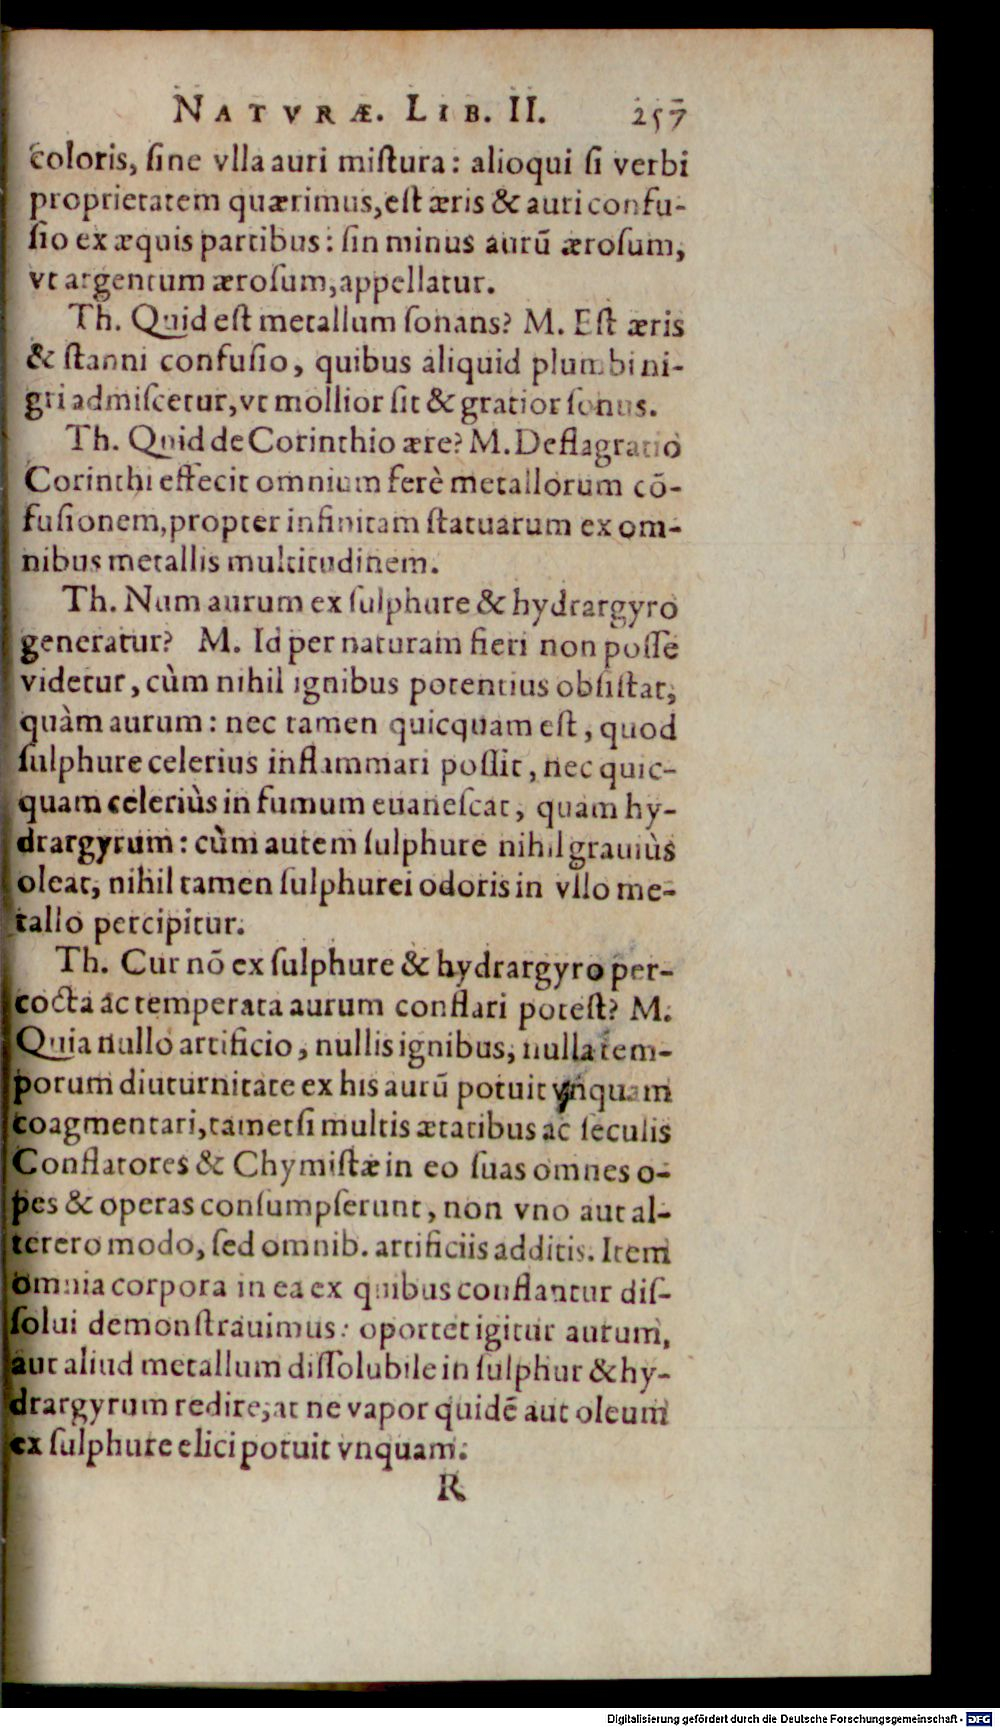 NATVRÆ. LIB. II. 257
coloris, ſine vlla auri miſtura: alioqui ſi verbi
proprietatem quærimus, eſt æris & auri confu-
ſio ex æquis partibus: ſin minus aurũ æroſum,
vt argentum æroſum, appellatur.
Th. Quid eſt metallum ſonans? M. Eſt æris
& ſtanni confuſio, quibus aliquid plumbi ni-
gri admiſcetur, vt mollior ſit & gratior ſonus.
Th. Quid de Corinthio ære? M. Deflagratio
Corinthi effecit omnium ferè metallorum cõ-
fuſionem, propter infinitam ſtatuarum ex om-
nibus metallis multitudinem.
Th. Num aurum ex ſulphure & hydrargyro
generatur? M. Id per naturam fieri non poſſe
videtur, cùm nihil ignibus potentius obſiſtat,
quàm aurum: nec tamen quicquam eſt, quod
ſulphure celerius inflammari poſſit, nec quic-
quam celeriùs in fumum euaneſcat, quam hy-
drargyrum: cùm autem ſulphure nihil grauiùs
oleat, nihil tamen ſulphurei odoris in vllo me-
tallo percipitur.
Th. Cur nõ ex ſulphure & hydrargyro per-
cocta ac temperata aurum conflari poteſt? M.
Quia nullo artificio, nullis ignibus, nulla tem-
porum diuturnitate ex his aurũ potuit vnquam
coagmentari, tametſi multis ætatibus ac ſeculis
Conflatores & Chymiſtæ in eo ſuas omnes o-
pes & operas conſumpſerunt, non vno aut al-
terero modo, ſed omnib. artificiis additis. Item
omnia corpora in ea ex quibus conflantur diſ-
ſolui demonſtrauimus: oportet igitur aurum,
aut aliud metallum diſſolubile in ſulphur & hy-
drargyrum redire, at ne vapor quidẽ aut oleum
ex ſulphure elici potuit vnquam.
R
Digitalisierung gefördert durch die Deutsche Forschungsgemeinschaft - DFG